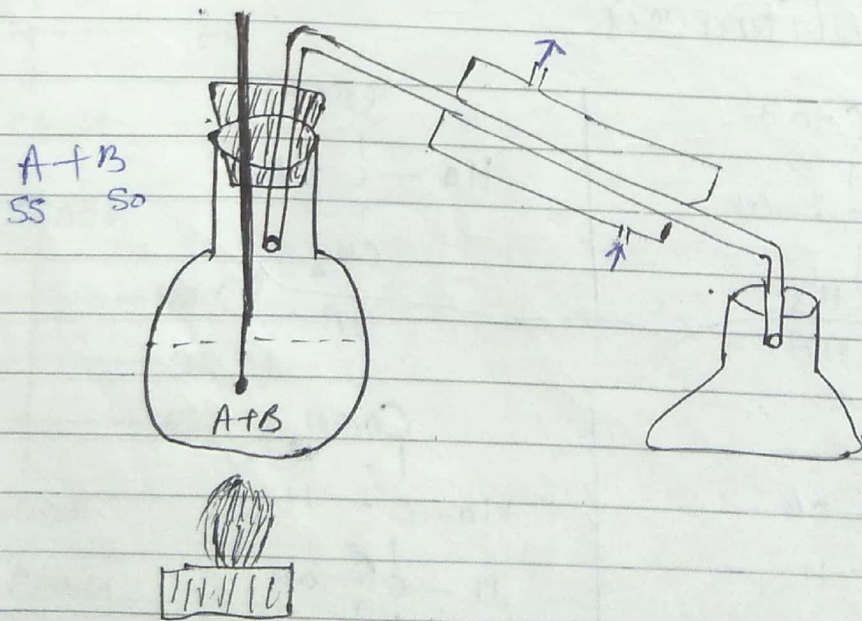 A + B
55 50
A+B